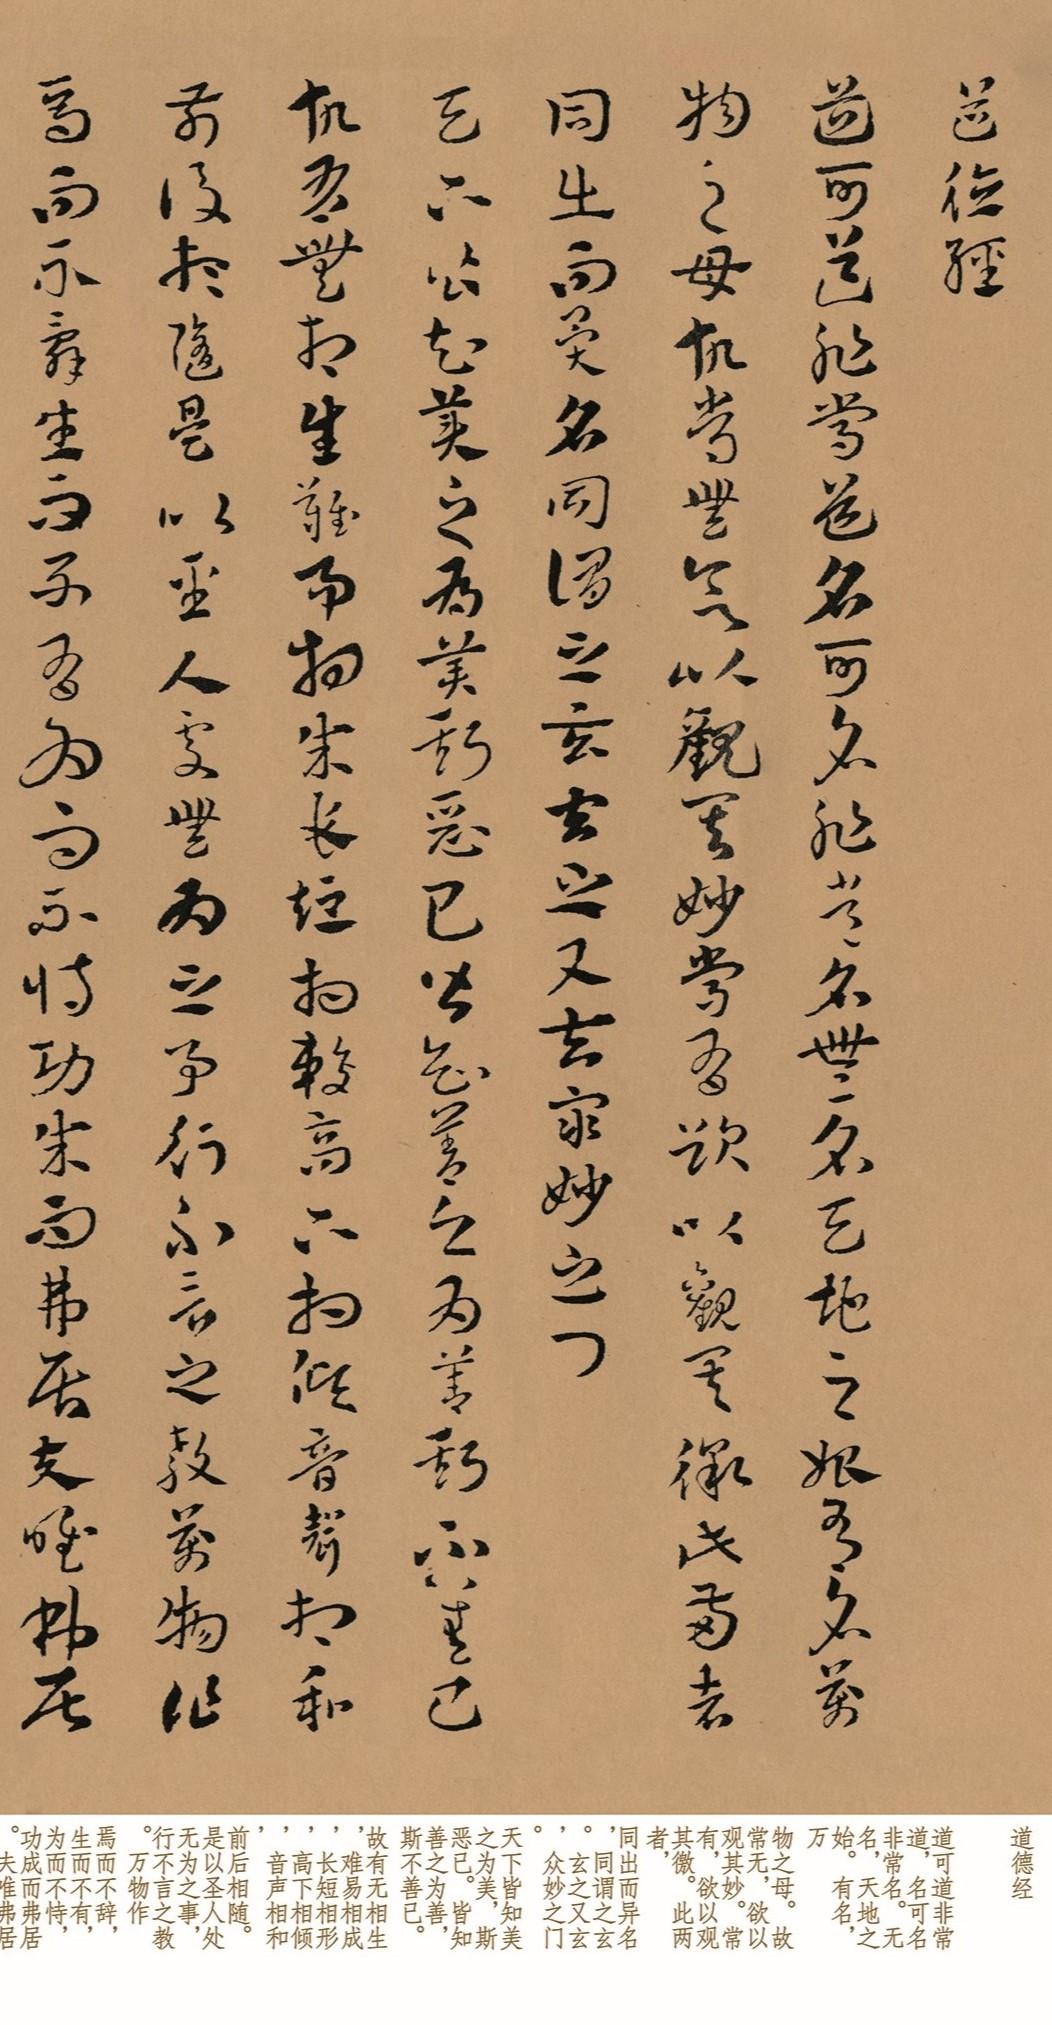 道德經
道可道非常道名可名非常名無名天地之始有名萬
物之母故常無欲以觀其妙常有欲以觀其徼此兩者
同出而異名同謂之玄玄之又玄衆妙之门
天下皆知美之為美斯惡已皆知善之為善斯不善已
故有無相生難易相成長短相較高下相傾音聲相和
前後相隨是以聖人處無為之事行不言之教萬物作
焉而不辭生而不有為而不恃功成而弗居夫唯弗居
道德经
道可道非常
道，名可名
非常名。无
名，天地之
始。有名，
万
物之母。故
常无，欲以
观其妙。常
有，欲以观
其徼。此两
者，
同出而异名
，同谓之玄
。玄之又玄
，众妙之门
。
天下皆知美
之为美，斯
恶已。皆知
善之为善，
斯不善已。
故有无相生
，难易相成
，长短相形
，高下相倾
，音声相和
，
前后相随。
是以圣人处
无为之事，
行不言之教
。万物作
焉而不辞，
生而不有，
为而不恃，
功成而弗居
。夫唯弗居